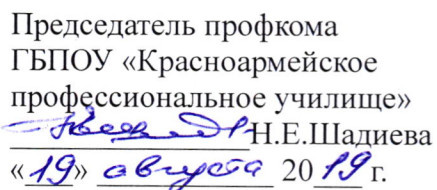 Председатель профкома
ГБПОУ «Красноармейское
профессиональное училище»
Н.Е.Шадиева
«19» августа 20 19 г.